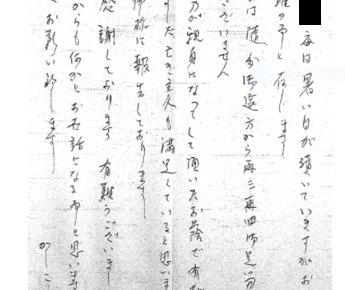 毎日暑い日が続いていますがお
存じます
は随分御遠方から再三再四御足い
ございません
方が親身になつて頂いたお蔭で有
また亡き主人も満足していると思いま
に報告しております
感謝しております 有難うございます
からも何かとお世話になる事と思います
くお願い致します
かしこ